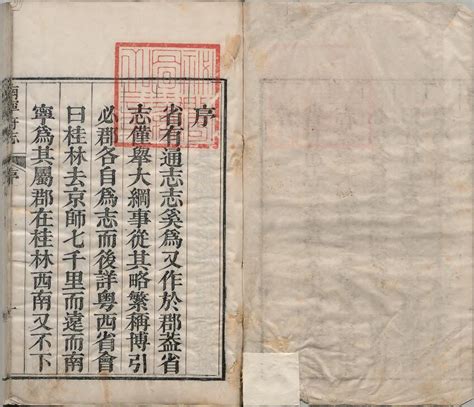 序
省有通志志奚爲又作於郡葢省
志僅舉大綱事從其略繁稱博引
必郡各自爲志而後詳粵西省會
曰桂林去京師七千里而遠而南
寧爲其屬郡在桂林西南又不下
南寧府志
序
一